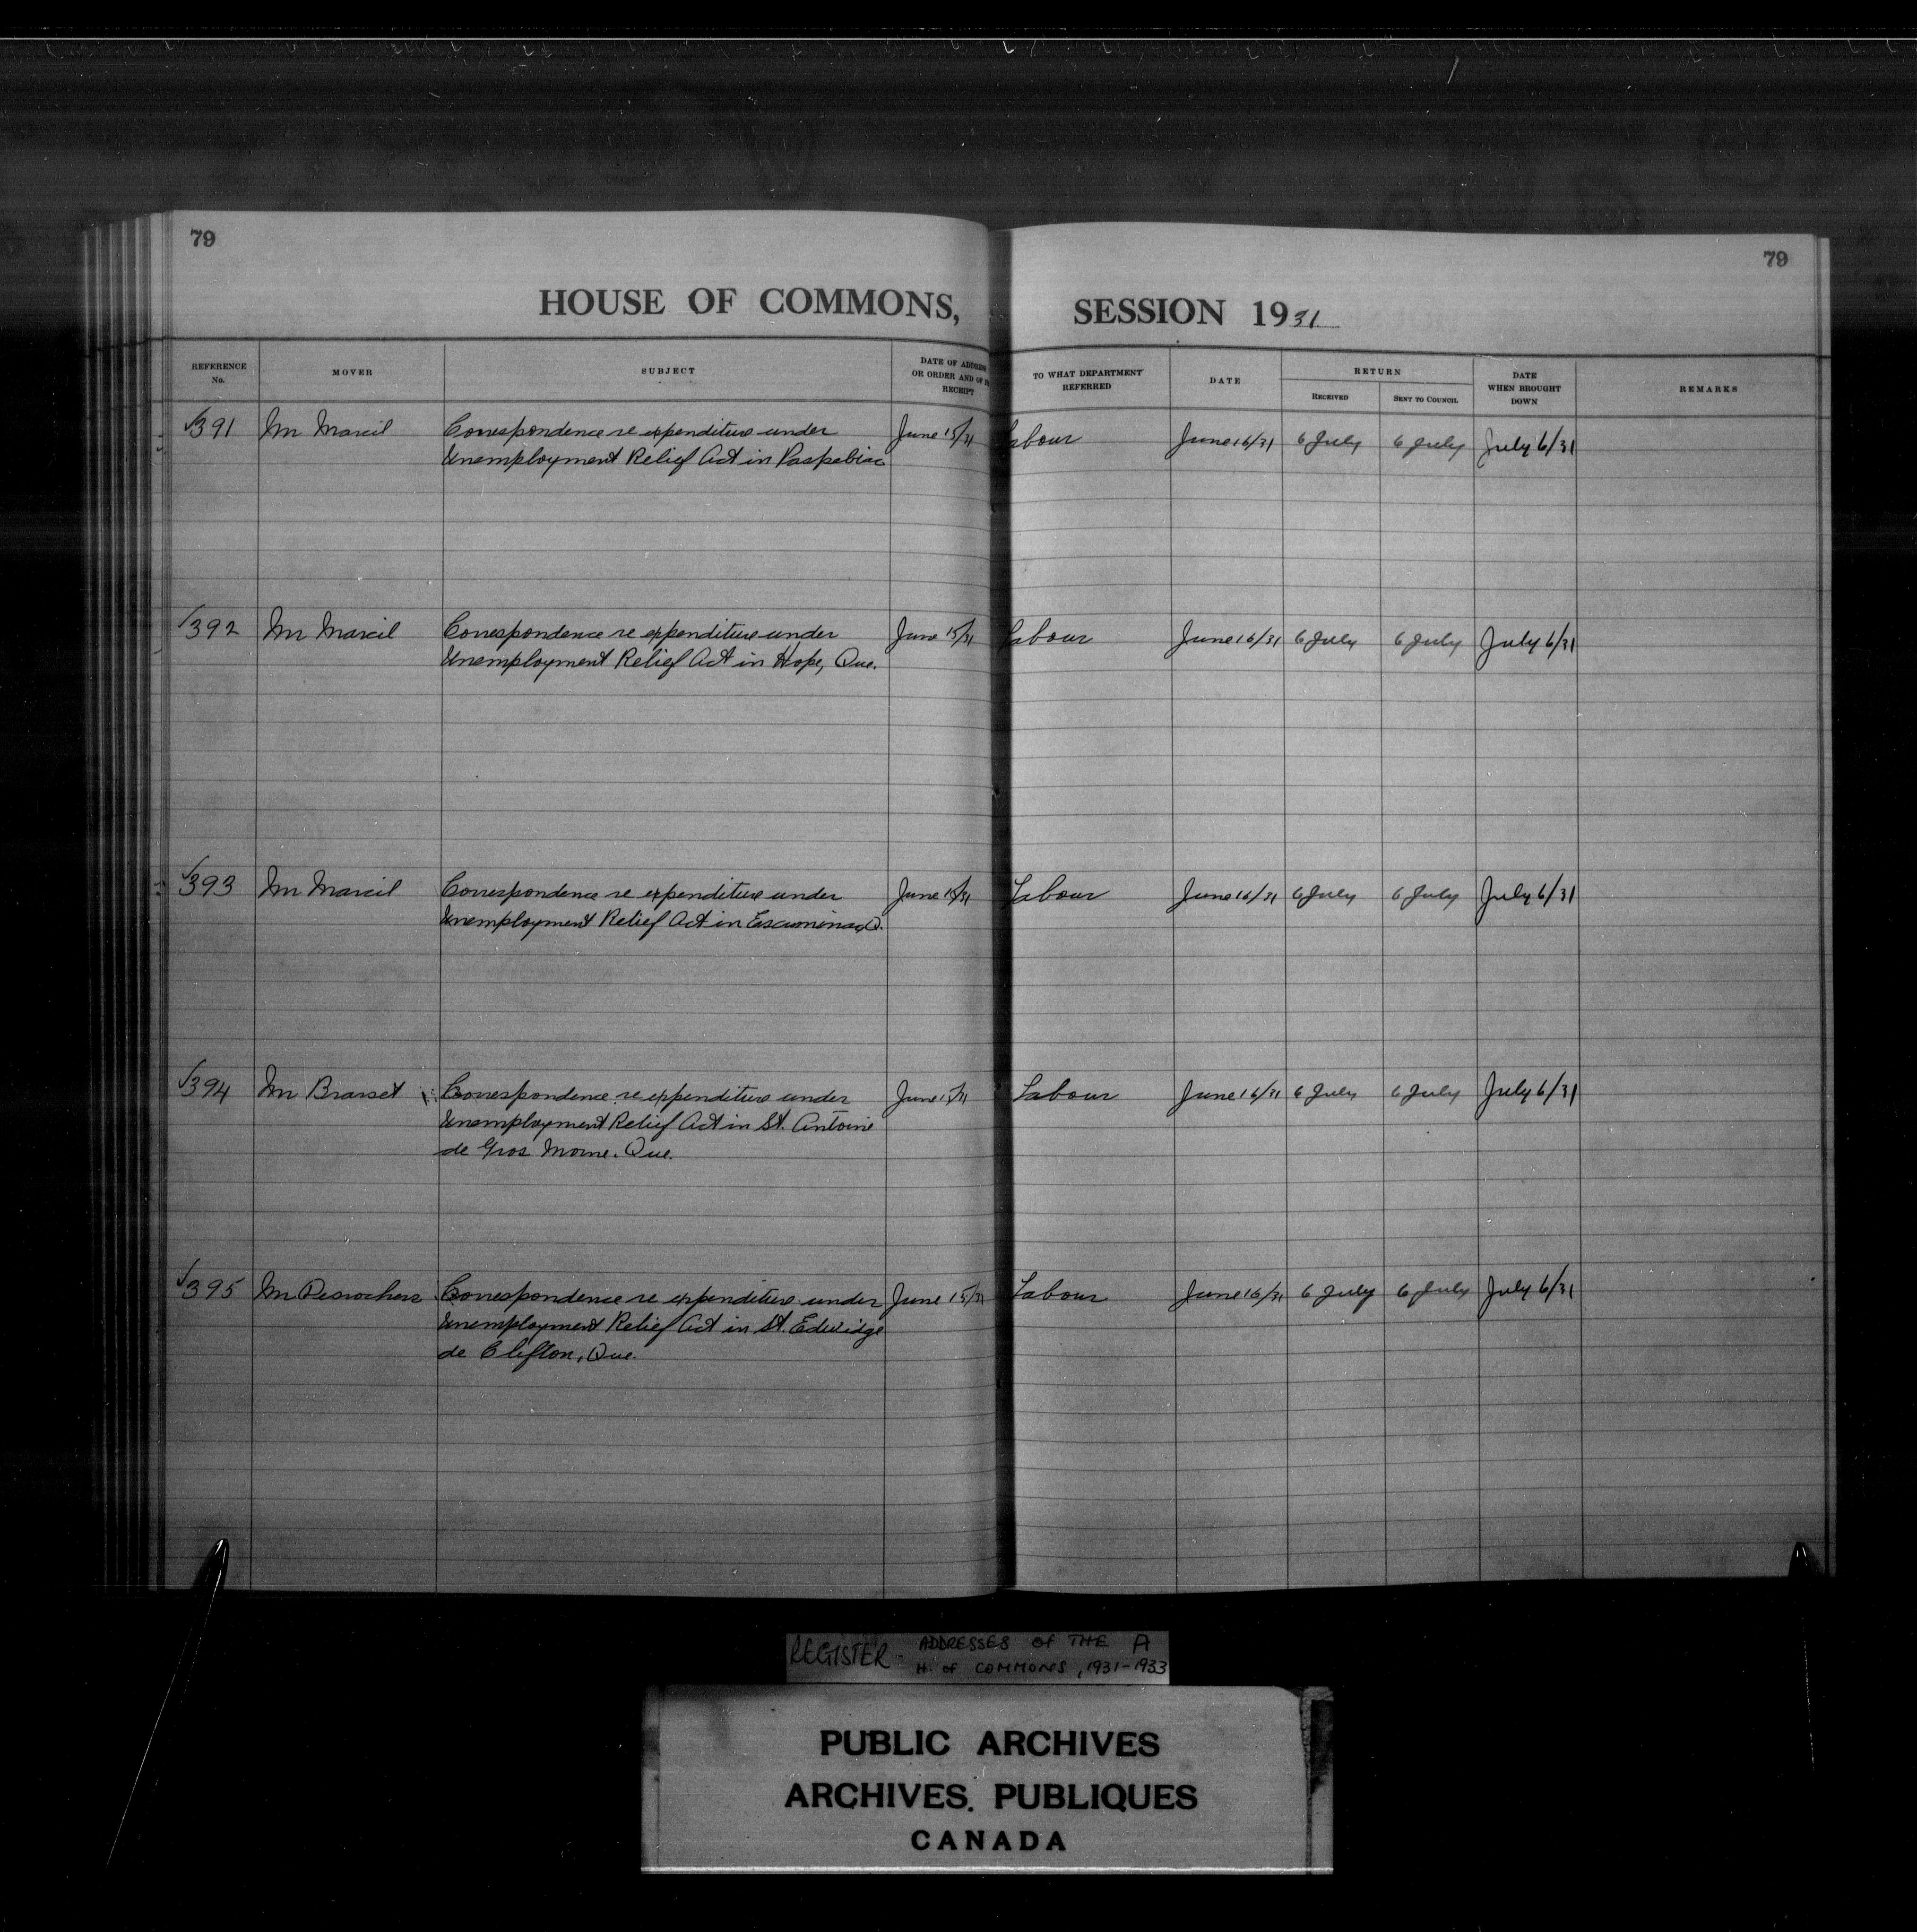 79
79
HOUSE OF COMMONS, SESSION 1931
REFERENCE No. MOVER SUBJECT DATE OF ADDRESS OR ORDER AND OF RECEIPT TO WHAT DEPARTMENT REFERRED DATE RETURN RECEIVED SENT TO COUNCIL DATE WHEN BROUGHT DOWN REMARKS
√391 Mr Marcil Correspondence re expenditure under June 15/31 Labour June 16/31 6 July 6 July July 6/31
Unemployment Relief Act in Paspebiac
√392 Mr Marcil Correspondence re expenditure under June 15/31 Labour June 16/31 6 July 6 July July 6/31
Unemployment Relief Act in Hope, Que.
√393 Mr Marcil Correspondence re expenditure under June 15/31 Labour June 16/31 6 July 6 July July 6/31
Unemployment Relief Act in Escuminac Q.
√394 Mr Brasset Correspondence re expenditure under June 15/31 Labour June 16/31 6 July 6 July July 6/31
Unemployment Relief Act in St. Antoine
de Gros Morne. Que.
√395 Mr Desrochers Correspondence re expenditure under June 15/31 Labour June 16/31 6 July 6 July July 6/31
Unemployment Relief Act in St. Edwidge
de Clifton, Que.
REGISTER - ADDRESSES OF THE A
H. OF COMMONS, 1931-1933
PUBLIC ARCHIVES
ARCHIVES PUBLIQUES
CANADA